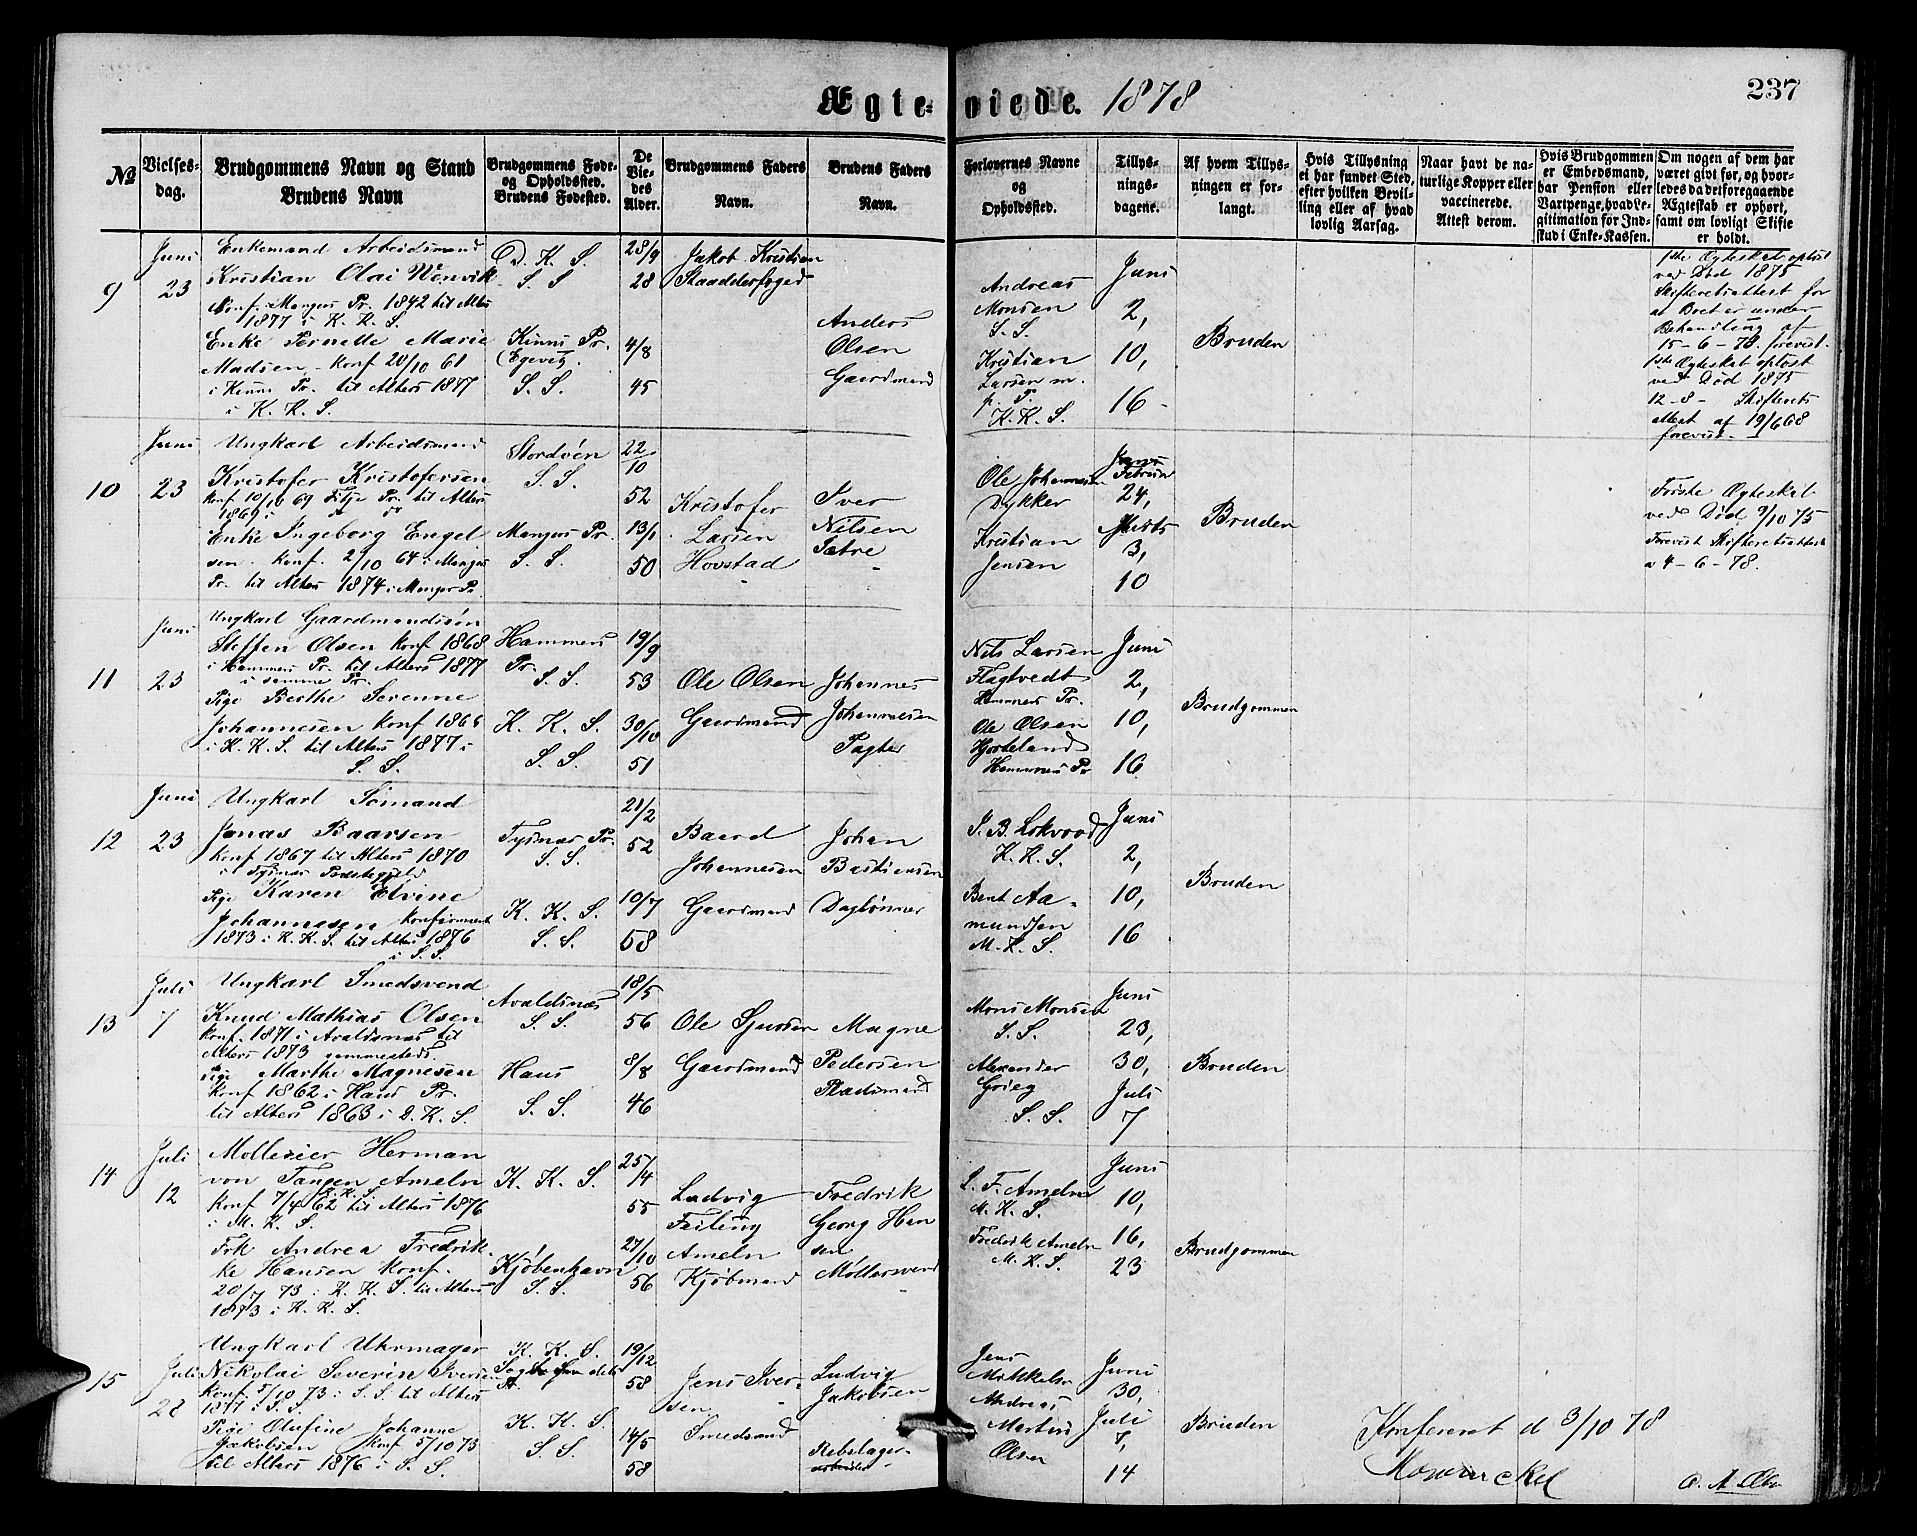 237
Ægteviede. 1878
№
Vielsesdag.
Brudgommens Navn og Stand
Brudens Navn
Brudgommens Føde-
og Opholdssted.
Brudens Fødested.
De
Vie-
des
Alder.
Brudgommens Faders
Navn.
Brudens Faders
Navn.
Forlovernes Navne
og
Opholdssted.
Tillys-
nings-
dagene.
Af hvem Tillys-
ningen er for-
langt.
Hvis Tillysning
ei har fundet Sted,
efter hvilken Bevil-
ling eller af hvad
lovlig Aarsag.
Naar havt de na-
turlige Kopper eller
vaccinerede.
Attest derom.
Hvis Brudgommen
er Embedsmand,
har Pension eller
Vartpenge, hvad Le-
gitimation for Ind-
skud i Enke-Kassen.
Om nogen af dem har
været givt før, og hvor-
ledes da det foregaaende
Ægteskab er ophørt,
samt om lovligt Skifte
er holdt.
9
Juni
23
Enkemand Arbeidsmand
Kristian Olai Wenvik
Konf. Mangers Pr. 1842 til Alters
1877 i K. K. S.
Enke Pernelle Marie
Madsen - Konf 20/10 61
i Kinns Pr. til Alters 1877
i K. K. S.
D. K. S.
S. S
Kinns Pr.
S. S.
28/9
28
4/8
45
Jakob Kristian
Anders
Olsen
Gaardmand
Andreas
Monsen
S. S.
Kristian
Larsen
K. K. S.
Juni
2,
10,
16 -
Bruden
1ste Ægteskab opløst
ved Død 1875
Skifteretsattest for
at Boet er under
Behandling af
15-6-78 forevist.
1ste Ægteskab opløst
ved Død 1875
12-8- Skifterets
attest af 19/6 68
forevist.
10
Juni
23
Ungkarl Arbeidsmand
Kristofer Kristofersen
Konf 10/10 69 Fitje Pr. til Alters
1869 i
Enke Ingeborg Engel
sen - Konf. 2/10 64 i Manger
Pr. til Alters 1874 i Manger Pr.
Stordøen
S. S.
Mangers Pr.
S. S.
22/10
52
13/1
50
Kristofer
Larsen
Hovstad
Iver
Nilsen
Sætre
Ole Johannesen
Dykker
Kristian
Jensen
Februar
24,
Marts
3,
10
Bruden
Første Ægteskab
ved Død 9/10 75
Forevist Skifteretsattest
a 4-6-78.
11
Juni
23
Ungkarl Gaardmandssøn
Steffen Olsen Konf 1868
i Hammers Pr. til Alters 1877
i samme Pr.
Pige Berthe Serenne
Johannesen Konf 1866
i K. K. S. til Alters 1877 i
S. S.
Hammers
Pr.
S. S.
K. K. S.
S. S.
19/9
53
30/10
51
Ole Olsen
Gaardmand
Johannes
Johannesen
Nils Larsen
Flagtvedt
Hammers Pr.
Ole Olsen
Hjorteland
Hammers Pr
Juni
2,
10,
16
Brudgommen
12
Juni
23
Ungkarl Sømand
Jonas Baarsen
Konf 1867 til Alters 1870
i Tysnæs Præstegjeld
Pige Karen Elvine
Johannesen Konfirmeret
1873 i K. K. S. til Alters 1876
i S. S.
Tysnæs Pr.
S. S.
K. K. S.
S. S.
21/2
52
10/7
58
Baard
Johannesen
Gaardmand
Johan
Bastiansen
Daglønner
K. K. S.
Bent Aa-
mundsen
M. K. S.
Juni
2,
10,
16
Bruden
13
Juli
7
Ungkarl Smedsvend
Knud Mathias Olsen
Konf. 1871 i Avaldsnæs til
Alters 1873 sammesteds.
Pige Marthe Magnesen
Konf 1862 i Haus Pr.
til Alters 1863 i D. K. S.
Avaldsnæs
S. S.
Haus
S. S.
18/5
56
8/8
46
Ole Sjursen
Gaardmand
Magne
Pedersen
Pladsmand
Mons Monsen
S. S.
Alexander
Grieg
S. S.
Juni
23,
30,
Juli
7
Bruden
14
Juli
12
Møllerier Herman
von Tangen Ameln
K. K. S.
Konf 7/4 62 til Alters 1876
i M. K. S.
Frk Andrea Fredrik-
ke Hansen Konf.
20/7 73 i K. K. S. til Alters
1873 i K. K. S.
K. K. S.
Kjøbenhavn
S. S.
25/4
55
27/10
56
Ludvig
Ameln
Kjøbmand
Fredrik
Georg Han
sen
Møllersvend
L. F. Ameln
M. K. S.
Fredrik Ameln
M. K. S.
Juni
10,
16,
23
Brudgommen
15
Juli
28
Ungkarl Uhrmager
Nikolai Severin Iversen
Konf. 5/10 73 i S. S. til Alters
1877 i S. S.
Pige Olufine Johanne
Jakobsen Konf 5/10 73
til Alters 1876 i S. S.
K. K. S.
K. K. S.
S. S.
19/12
58
14/5
58
Jens Iver-
sen
Smedsvend
Ludvig
Jakobsen
Rebslager-
arbeider
Jens
Mikkelsen
Andreas
Martin
Olsen
Juni
30,
Juli
7,
14
Bruden
Konfereret d 3/10 78
Mowinckel